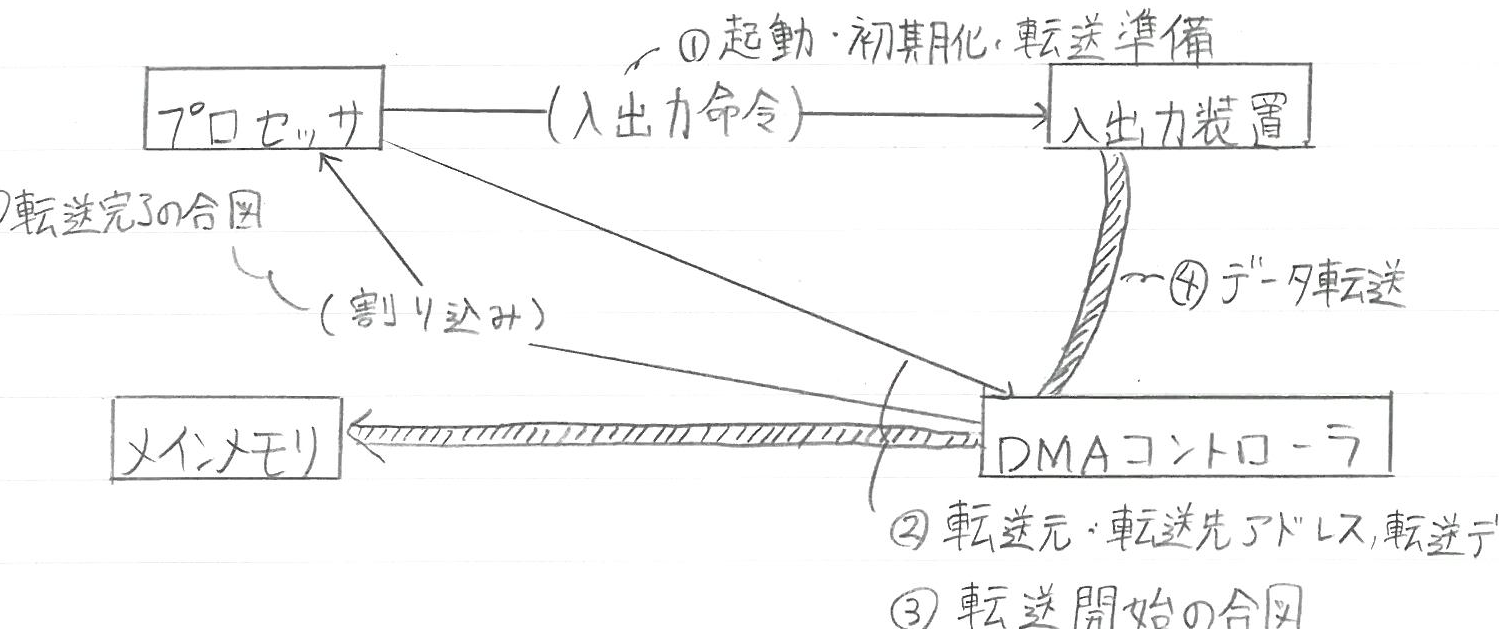 ①起動・初期化、転送準備
プロセッサ
(入出力命令)
入出力装置
転送完了の合図
(割り込み)
④データ転送
メインメモリ
DMAコントローラ
②転送元・転送先アドレス,転送デ
③転送開始の合図